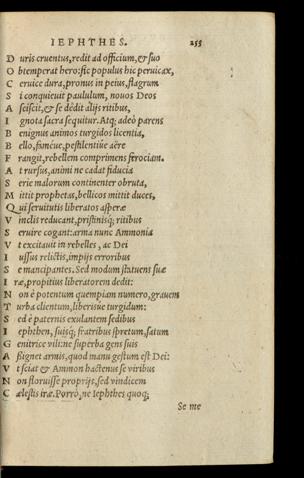 IEPHTHES. 255
D uris cruentus, redit ad officium, & suo
O btemperat hero: sic populus hic peruicax,
C eruice dura, pronus in peius, flagrum
S i conquieuit paululum, nouos Deos
A sciscit, & se dedit alijs ritibus,
I gnota sacra sequitur. Atq; adeò parens
B enignus animos turgidos licentia,
B ello, famèue, pestilentiúe aëre
F rangit, rebellem comprimens ferociam.
A t rursus, animi ne cadat fiducia
S erie malorum continenter obruta,
M ittit prophetas, bellicos mittit duces,
Q ui seruitutis liberatos asperæ
V inclis reducant, pristinisq; ritibus
S eruire cogant: arma nunc Ammonia
V t excitauit in rebelles, ac Dei
I ussus relictis, impijs erroribus
S e mancipantes. Sed modum statuens suæ
I ræ, propitius liberatorem dedit:
N on è potentum quempiam numero, grauem
T urba clientum, liberisue turgidum:
S ed è paternis exulantem sedibus
I ephthen, suisq; fratribus spretum, satum
G enitrice vili: ne superba gens suis
A ssignet armis, quod manu gestum est Dei:
V t sciat & Ammon hactenus se viribus
N on floruisse proprijs, sed vindicem
C ælestis iræ. Porrò, ne Iephthes quoq;
Se me